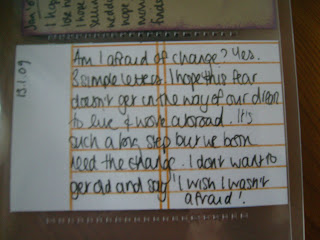 I hope
I hope
hope
13.1.09
Am I afraid of change? Yes.
3 simple letters. I hope this fear
doesn't get in the way of our dream
to live & work abroad. It's
such a step but we both
need the change. I don't want to
get old and say "I wish I wasn't
afraid".